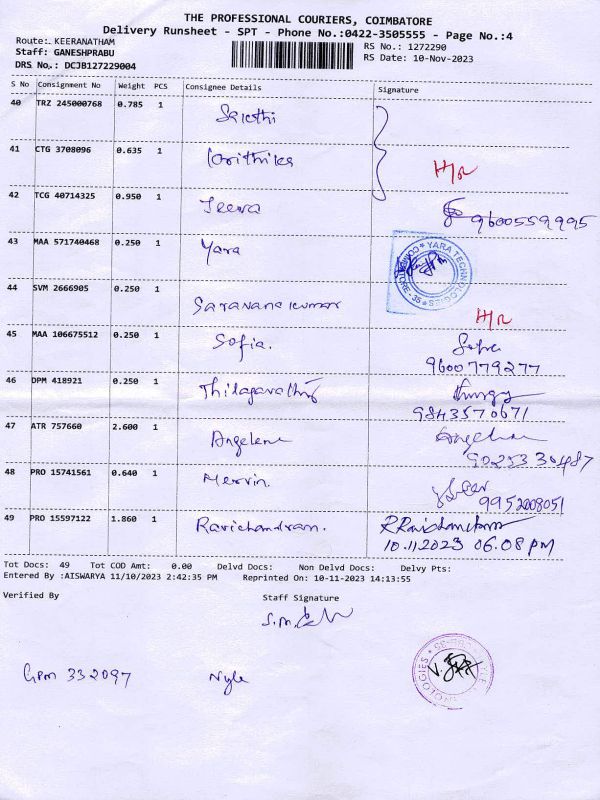 THE PROFESSIONAL COURIERS, COIMBATORE
Delivery Runsheet - SPT - Phone No.:0422-3505555 - Page No.:4
Route:. KEERANATHAM
RS No.: 1272290
Staff: GANESHPRABU
RS Date: 10-Nov-2023
DRS No.: DCJB127229004
S No Consignment No Weight PCS Consignee Details Signature
40 TRZ 245000768 0.785 1 Sakthi
41 CTG 3708096 0.635 1 Kirithika H/R
42 TCG 40714325 0.950 1 Jeeva 9600559995
43 MAA 571740468 0.250 1 Yara YARA TECHNOLOGIES
44 SVM 2666905 0.250 1 Saravana kumar H/R
45 MAA 106675512 0.250 1 Sofia. 9600779277
46 DPM 418921 0.250 1 Thilagavathy 9843570671
47 ATR 757660 2.600 1 Angelene 9025330487
48 PRO 15741561 0.640 1 Mervin. 9952008051
49 PRO 15597122 1.860 1 Ravichandran.
10.11.2023 06.08 PM
Tot Docs: 49 Tot COD Amt: 0.00 Delvd Docs: Non Delvd Docs: Delvy Pts:
Entered By :AISWARYA 11/10/2023 2:42:35 PM Reprinted On: 10-11-2023 14:13:55
Verified By Staff Signature
GPM 332097 Nyle